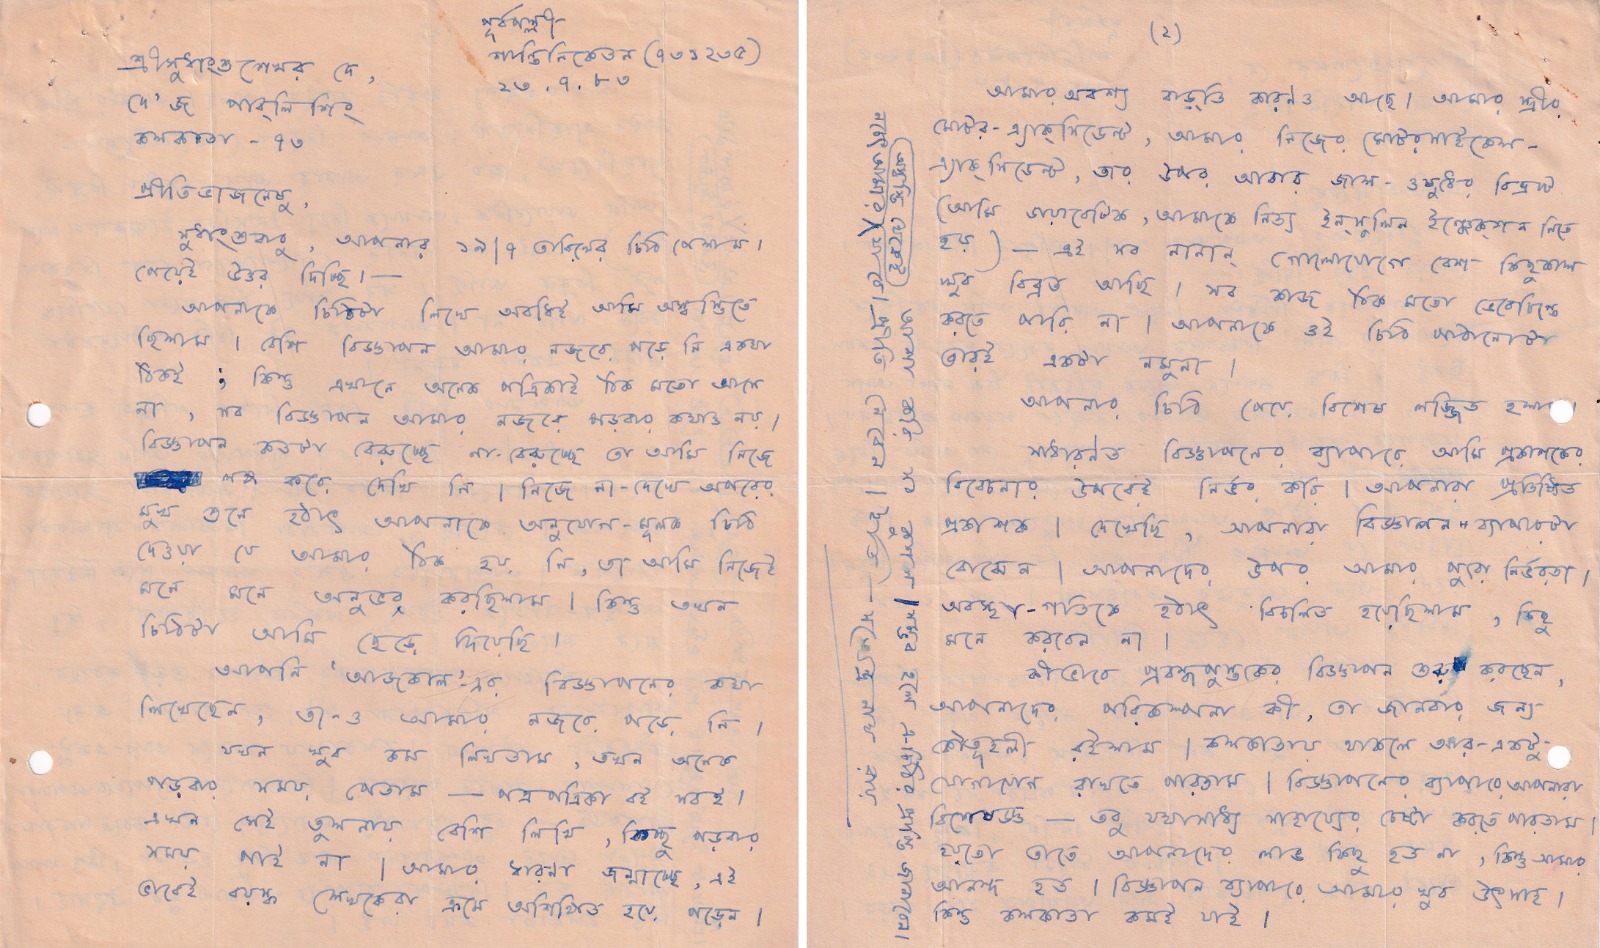 পূর্বপল্লী
শান্তিনিকেতন (৭৩১২৩৫)
২৩.৭.৮৩
শ্রীসুধাংশুশেখর দে,
দে'জ পাবলিশিং
কলকাতা - ৭৩
প্রীতিভাজনেষু,
সুধাংশুবাবু, আপনার ১৯/৭ তারিখের চিঠি পেলাম।
পেয়েই উত্তর দিচ্ছি।—
আপনাকে চিঠিটা লিখে অবধিই আমি অস্বস্তিতে
ছিলাম। বেশি বিজ্ঞাপন আমার নজরে পড়ে নি একথা
ঠিকই; কিন্তু এখানে অনেক পত্রিকাই ঠিক মতো আসে
না, সব বিজ্ঞাপন আমার নজরে পড়বার কথাও নয়।
বিজ্ঞাপন কতটা বেরুচ্ছে না-বেরুচ্ছে তা আমি নিজে
লক্ষ করে দেখি নি। নিজে না-দেখে অপরের
মুখে শুনে হঠাৎ আপনাকে অনুযোগ-মূলক চিঠি
দেওয়া যে আমার ঠিক হয় নি, তা আমি নিজেই
মনে মনে অনুভব করছিলাম। কিন্তু তখন
চিঠিটা আমি ছেড়ে দিয়েছি।
আপনি 'আজকাল'-এর বিজ্ঞাপনের কথা
লিখেছেন, তা-ও আমার নজরে পড়ে নি।
যখন খুব কম লিখতাম, তখন অনেক
পড়বার সময় পেতাম — পত্রপত্রিকা বই সবই।
এখন সেই তুলনায় বেশি লিখি, কিন্তু পড়বার
সময় পাই না। আমার ধারণা জন্মাচ্ছে, এই
ভাবেই বয়স্ক লেখকেরা ক্রমে অশিক্ষিত হয়ে পড়েন।
(২)
আমার অবশ্য বাড়্‌তি কারণও আছে। আমার স্ত্রীর
মোটর-অ্যাক্‌সিডেন্ট, আমার নিজের মোটরসাইকেল-
অ্যাক্‌সিডেন্ট, তার উপর আবার জাল-ওষুধের বিভ্রাট
(আমি ডায়াবেটিক, আমাকে নিত্য ইন্‌সুলিন ইঞ্জেক্‌শন নিতে
হয়) — এই সব নানান্ গোলোযোগে বেশ কিছুকাল
খুব বিব্রত আছি। সব কাজ ঠিক মতো ভেবেচিন্তে
করতে পারি না। আপনাকে ওই চিঠি পাঠানোটা
তারই একটা নমুনা।
আপনার চিঠি পেয়ে বিশেষ লজ্জিত হলাম।
সাধারণত বিজ্ঞাপনের ব্যাপারে আমি প্রকাশকের
বিবেচনার উপরেই নির্ভর করি। আপনারা প্রতিষ্ঠিত
প্রকাশক। দেখেছি, আপনারা বিজ্ঞাপন-ব্যাপারটা
বোঝেন। আপনাদের উপর আমার পুরো নির্ভরতা।
অবস্থা-গতিকে হঠাৎ বিচলিত হয়েছিলাম, কিছু
মনে করবেন না।
কীভাবে প্রবন্ধপুস্তকের বিজ্ঞাপন শুরু করছেন,
আপনাদের পরিকল্পনা কী, তা জানবার জন্য
কৌতূহলী রইলাম। কলকাতায় থাকলে আর-একটু
যোগাযোগ রাখতে পারতাম। বিজ্ঞাপনের ব্যাপারে আপনারা
বিশেষজ্ঞ — তবু যথাসাধ্য সাহায্যের চেষ্টা করতে পারতাম।
হয়তো তাতে আপনাদের লাভ কিছু হত না, কিন্তু আমার
আনন্দ হত। বিজ্ঞাপন ব্যাপারে আমার খুব উৎসাহ।
কিন্তু কলকাতা কমই যাই।
আশা করি সব কুশল। সম্ভব হলে এ-চিঠির প্রাপ্তি জানাবেন।
প্রীতি নেবেন। ইতি—